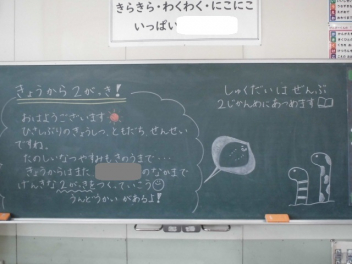 きらきら・わくわく・にこにこ
いっぱい
きょうから2がっき!
おはようございます
ひさしぶりのきょうしつ、ともだち、せんせい
ですね。
たのしいなつやすみも、きのうまで・・・
きょうからはまた のなかまで
げんきな2がっきをつくっていこう
うんどうかいがあるよ!
しゅくだいはぜんぶ
2じかんめにあつめます